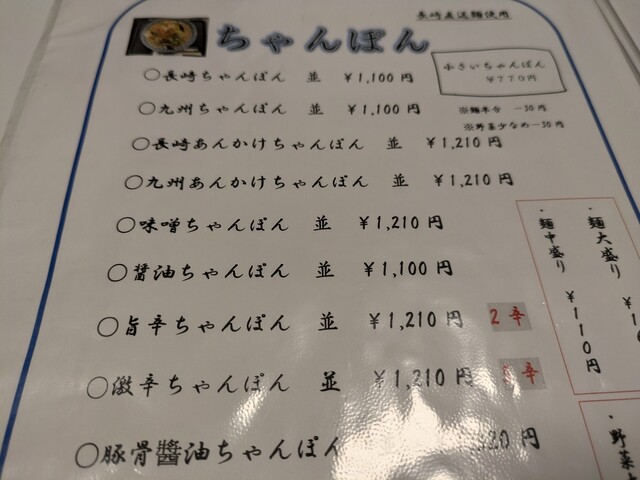 長崎直送麺使用
ちゃんぽん
小さいちゃんぽん
￥770円
○長崎ちゃんぽん 並 ￥1,100円
○九州ちゃんぽん 並 ￥1,100円
※麺半分 －30円
※野菜少なめ－30円
○長崎あんかけちゃんぽん 並 ￥1,210円
○九州あんかけちゃんぽん 並 ￥1,210円
○味噌ちゃんぽん 並 ￥1,210円
○醤油ちゃんぽん 並 ￥1,100円
○旨辛ちゃんぽん 並 ￥1,210円 2辛
○激辛ちゃんぽん 並 ￥1,210円 辛
○豚骨醬油ちゃんぽん 20円
・麺大盛り ￥1
・麺中盛り ￥110円
・野菜